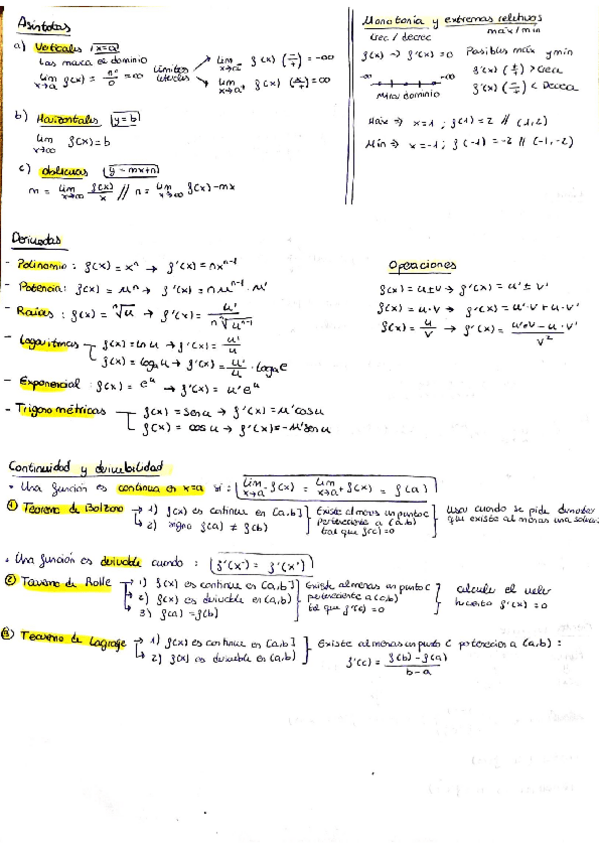 Asíntotas
a) Verticales (x=a)
Las marca el dominio
lim x→a f(x) = nº/0 = ∞
Límites laterales
lim x→a⁻ f(x) (-/+) = -∞
lim x→a⁺ f(x) (+/+) = ∞
b) Horizontales (y=b)
lim x→∞ f(x) = b
c) oblicuas (y = mx+n)
m = lim x→∞ f(x)/x // n = lim x→∞ f(x) - mx
Monotonía y extremos relativos
crec / decrec máx / mín
f(x) → f'(x) = 0 Posibles máx y mín
-∞ ∞
Mirar dominio
f'(x) (+/+) > Crece
f'(x) (-/+) < Decrece
Máx ⇒ x=1 ; f(1) = 2 // (1,2)
Mín ⇒ x=-1 ; f(-1) = -2 // (-1,-2)
Derivadas
- Polinomio : f(x) = xⁿ → f'(x) = nxⁿ⁻¹
- Potencia : f(x) = uⁿ → f'(x) = nuⁿ⁻¹ · u'
- Raíces : f(x) = ⁿ√u → f'(x) = u' / n ⁿ√uⁿ⁻¹
- Logaritmos f(x) = ln u → f'(x) = u'/u
f(x) = logₐ u → f'(x) = u'/u · logₐ e
- Exponencial : f(x) = eᵘ → f'(x) = u' eᵘ
- Trigonométricas f(x) = sen u → f'(x) = u' cos u
f(x) = cos u → f'(x) = -u' sen u
Operaciones
f(x) = u ± v → f'(x) = u' ± v'
f(x) = u · v → f'(x) = u' · v + u · v'
f(x) = u/v → f'(x) = u' · v - u · v' / v²
Continuidad y derivabilidad
• Una función es continua en x=a si : lim x→a⁻ f(x) = lim x→a⁺ f(x) = f(a)
① Teorema de Bolzano → 1) f(x) es continua en [a,b]
2) signo f(a) ≠ f(b)
Existe al menos un punto c
perteneciente a (a,b)
tal que f(c) = 0
Usar cuando se pide demostrar
que existe al menos una
• Una función es derivable cuando : f'(x⁻) = f'(x⁺)
② Teorema de Rolle → 1) f(x) es continua en [a,b]
2) f(x) es derivable en (a,b)
3) f(a) = f(b)
Existe al menos un punto c
perteneciente a (a,b)
tal que f'(c) = 0
calcular el valor
f'(x) = 0
③ Teorema de Lagrange → 1) f(x) es continua en [a,b]
2) f(x) es derivable en (a,b)
Existe al menos un punto c perteneciente a (a,b) :
f'(c) = f(b) - f(a) / b - a